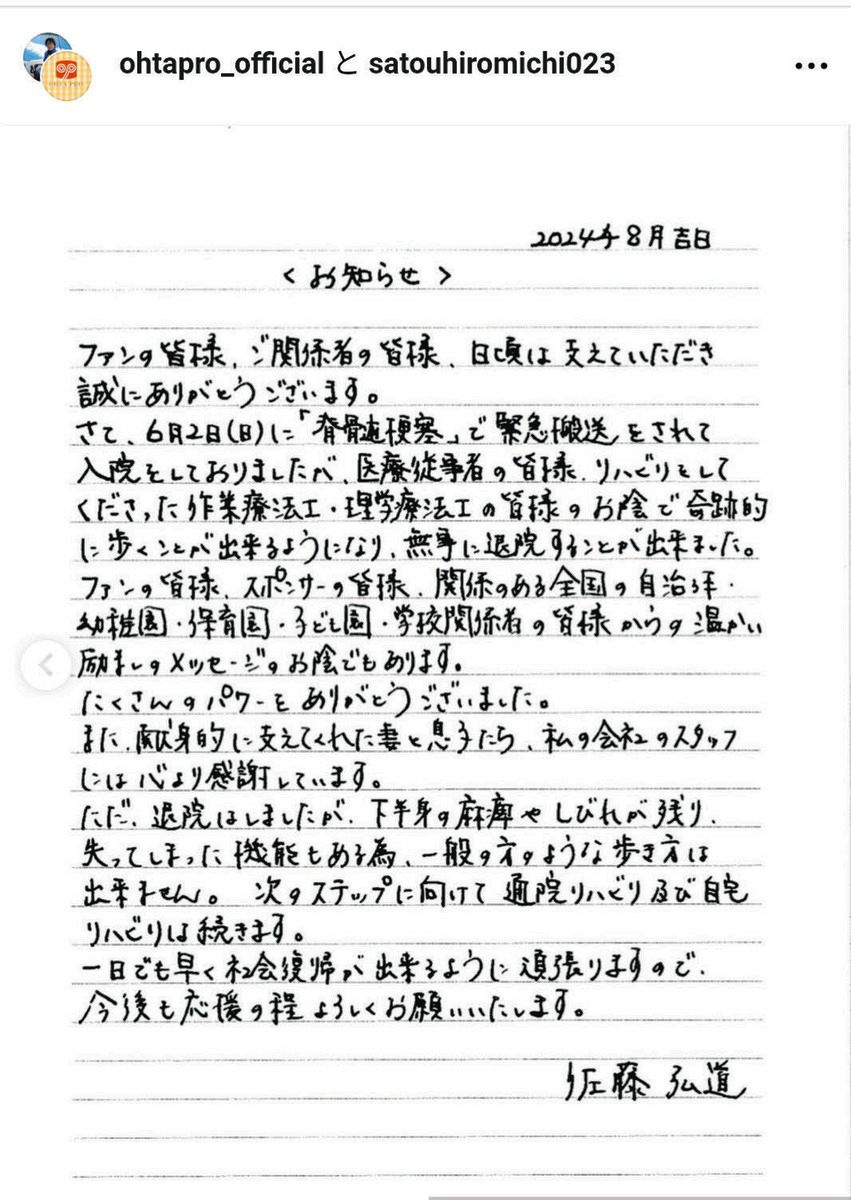 ohtapro_official と satouhiromichi023
2024年8月吉日
<お知らせ>
ファンの皆様、ご関係者の皆様、日頃は支えていただき
誠にありがとうございます。
さて、6月2日(日)に「脊髄梗塞」で緊急搬送をされて
入院をしておりましたが、医療従事者の皆様、リハビリをして
くださった作業療法士・理学療法士の皆様のお陰で奇跡的
に歩くことが出来るようになり、無事に退院することが出来ました。
ファンの皆様、スポンサーの皆様、関係のある全国の自治体・
幼稚園・保育園・子ども園・学校関係者の皆様からの温かい
励ましのメッセージのお陰でもあります。
たくさんのパワーをありがとうございました。
また、献身的に支えてくれた妻と息子たち、私の会社のスタッフ
には心より感謝しています。
ただ、退院はしましたが、下半身の麻痺やしびれが残り、
失ってしまった機能もある為、一般の方のような歩き方は
出来ません。 次のステップに向けて通院リハビリ及び自宅
リハビリは続きます。
一日でも早く社会復帰が出来るように頑張りますので、
今後も応援の程よろしくお願いいたします。
佐藤弘道